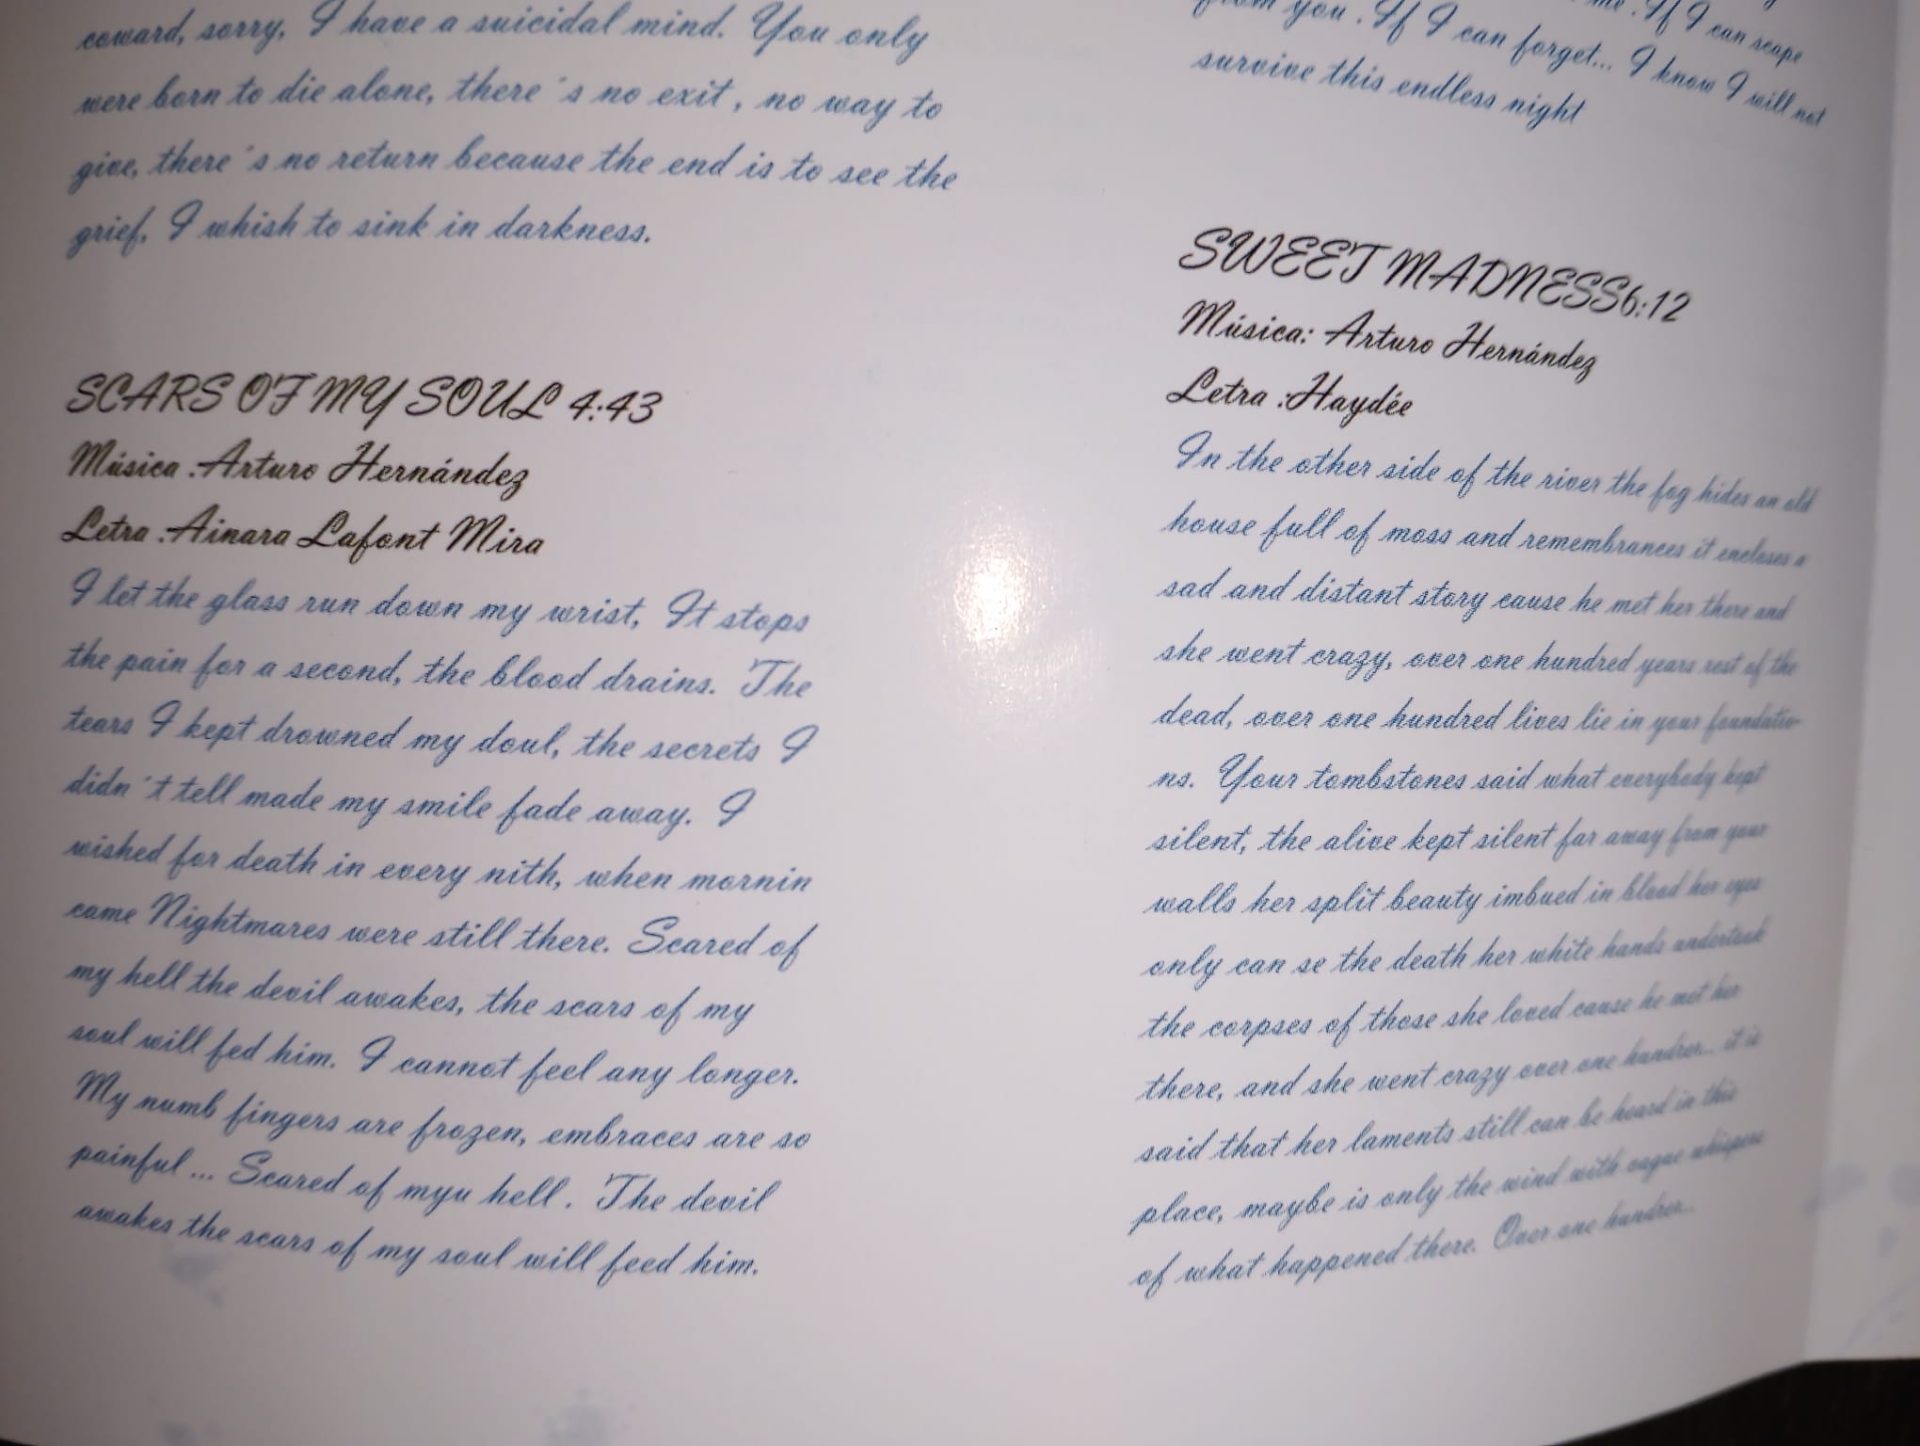 coward, sorry, I have a suicidal mind. You only
were born to die alone, there´s no exit, no way to
give, there´s no return because the end is to see the
grief, I whish to sink in darkness.
SCARS OF MY SOUL 4:43
Música :Arturo Hernández
Letra :Ainara Lafont Mira
I let the glass run down my wrist, It stops
the pain for a second, the blood drains. The
tears I kept drowned my doul, the secrets I
didn´t tell made my smile fade away. I
wished for death in every nith, when mornin
came Nightmares were still there. Scared of
my hell the devil awakes, the scars of my
soul will fed him. I cannot feel any longer.
My numb fingers are frozen, embraces are so
painful... Scared of myu hell. The devil
awakes the scars of my soul will feed him.
me. If I can scape
from you. If I can forget... I know I will not
survive this endless night
SWEET MADNESS6:12
Música: Arturo Hernández
Letra :Haydée
In the other side of the river the fog hides an old
house full of moss and remembrances it encloses a
sad and distant story cause he met her there and
she went crazy, over one hundred years rest of the
dead, over one hundred lives lie in your foundatio-
ns. Your tombstones said what everybody kept
silent, the alive kept silent far away from your
walls her split beauty imbued in blood her eyes
only can se the death her white hands undertook
the corpses of those she loved cause he met her
there, and she went crazy over one hundrer... it is
said that her laments still can be heard in this
place, maybe is only the wind with vague whispers
of what happened there. Over one hundrer...